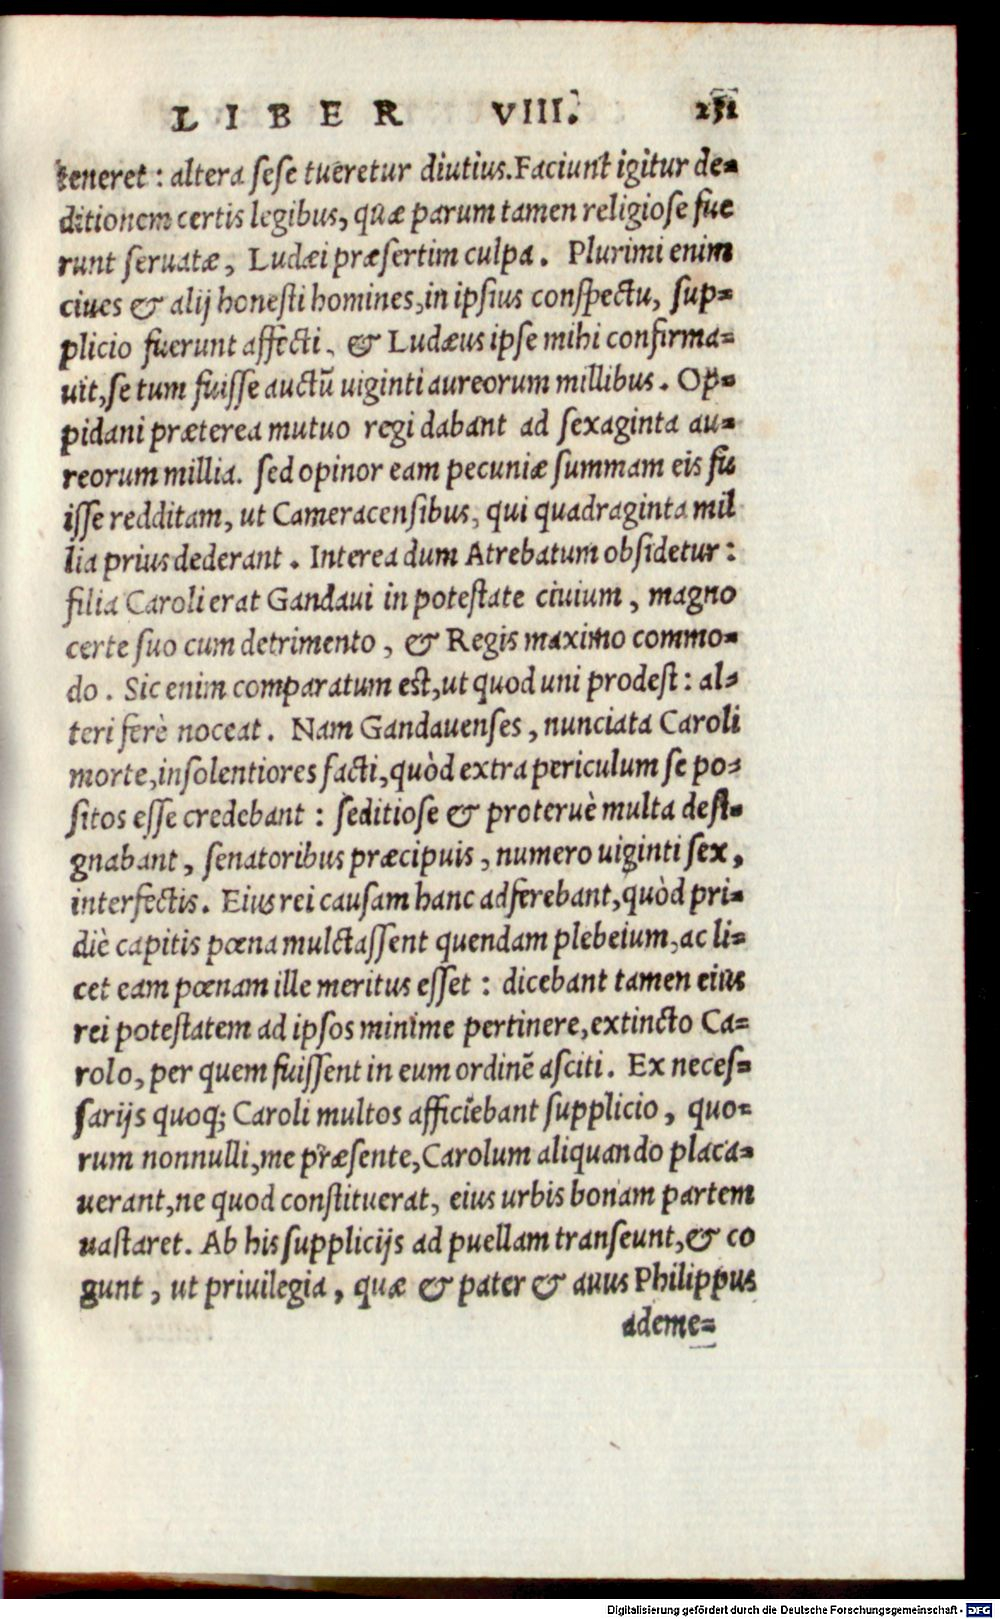 LIBER VIII. 251
teneret : altera sese tueretur diutius. Faciunt igitur de-
ditionem certis legibus, quæ parum tamen religiose fue
runt seruatæ, Ludæi præsertim culpa. Plurimi enim
ciues & alij honesti homines, in ipsius conspectu, sup-
plicio fuerunt affecti, & Ludæus ipse mihi confirma-
uit, se tum fuisse auctũ uiginti aureorum millibus. Op-
pidani præterea mutuo regi dabant ad sexaginta au-
reorum millia. sed opinor eam pecuniæ summam eis fu
isse redditam, ut Cameracensibus, qui quadraginta mil
lia prius dederant. Interea dum Atrebatum obsidetur :
filia Caroli erat Gandaui in potestate ciuium, magno
certe suo cum detrimento, & Regis maximo commo-
do. Sic enim comparatum est, ut quod uni prodest : al-
teri ferè noceat. Nam Gandauenses, nunciata Caroli
morte, insolentiores facti, quòd extra periculum se po-
sitos esse credebant : seditiose & proteruè multa desi-
gnabant, senatoribus præcipuis, numero uiginti sex,
interfectis. Eius rei causam hanc adferebant, quòd pri-
diè capitis pœna mulctassent quendam plebeium, ac li-
cet eam pœnam ille meritus esset : dicebant tamen eius
rei potestatem ad ipsos minime pertinere, extincto Ca-
rolo, per quem fuissent in eum ordinẽ asciti. Ex neces-
sarijs quoq; Caroli multos afficiebant supplicio, quo-
rum nonnulli, me præsente, Carolum aliquando placa-
uerant, ne quod constituerat, eius urbis bonam partem
uastaret. Ab his supplicijs ad puellam transeunt, & co
gunt, ut priuilegia, quæ & pater & auus Philippus
ademe-
Digitalisierung gefördert durch die Deutsche Forschungsgemeinschaft - DFG